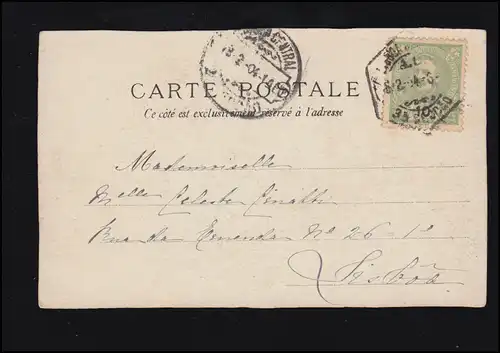 CENTRAL
8-2-04
CARTE POSTALE
Ce côté est exclusivement réservé à l'adresse
Mademoiselle
Melle Celeste
Rua da Emenda Nº 26-1º
Lisbôa